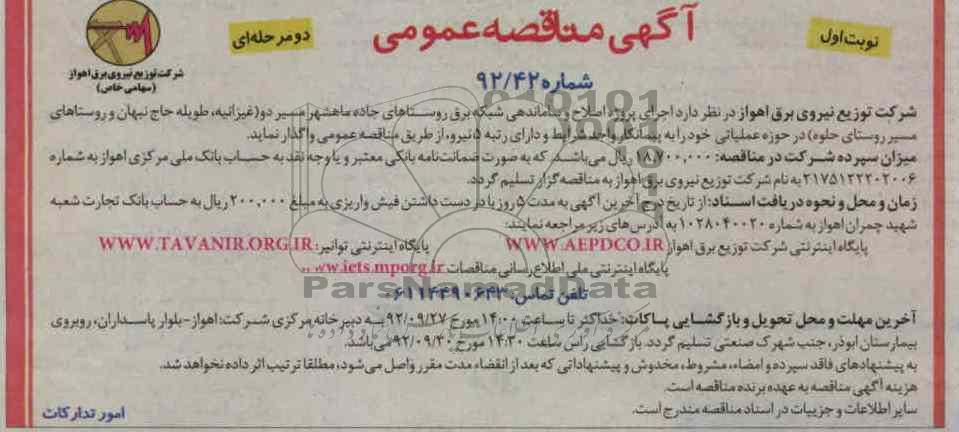 آگهی مناقصه عمومی
نوبت اول
دو مرحله‌ای
شرکت توزیع نیروی برق اهواز
(سهامی خاص)
شماره ۹۲/۴۲
شرکت توزیع نیروی برق اهواز در نظر دارد اجرای پروژه اصلاح و ساماندهی شبکه برق روستاهای جاده ماهشهر مسیر دو (غیزانیه، طویله حاج نبهان و روستاهای
مسیر روستای حلوه) در حوزه عملیاتی خود را به پیمانکار واجد شرایط و دارای رتبه ۵ نیرو، از طریق مناقصه عمومی واگذار نماید.
میزان سپرده شرکت در مناقصه: ۱۸,۷۰۰,۰۰۰ ریال می‌باشد که به صورت ضمانت‌نامه بانکی معتبر و یا وجه نقد به حساب بانک ملی مرکزی اهواز به شماره
۲۱۷۵۱۲۲۲۰۲۰۰۶ به نام شرکت توزیع نیروی برق اهواز به مناقصه گزار تسلیم گردد.
زمان و محل و نحوه دریافت اسناد: از تاریخ درج آخرین آگهی به مدت ۵ روز با در دست داشتن فیش واریزی به مبلغ ۲۰۰,۰۰۰ ریال به حساب بانک تجارت شعبه
شهید چمران اهواز به شماره ۱۰۲۸۰۴۰۰۲۰ به آدرس‌های زیر مراجعه نمایند:
پایگاه اینترنتی شرکت توزیع برق اهواز WWW.AEPDCO.IR پایگاه اینترنتی توانیر: WWW.TAVANIR.ORG.IR
پایگاه اینترنتی ملی اطلاع رسانی مناقصات iets.mporg.ir
ParsNamadData
تلفن تماس: ۰۶۱۱۴۴۹۰۶۴۳
آخرین مهلت و محل تحویل و بازگشایی پاکات: حداکثر تا ساعت ۱۴:۰۰ مورخ ۹۲/۰۹/۲۷ به دبیرخانه مرکزی شرکت: اهواز-بلوار پاسداران، روبروی
بیمارستان ابوذر، جنب شهرک صنعتی تسلیم گردد. بازگشایی راس ساعت ۱۴:۳۰ مورخ ۹۲/۰۹/۳۰ می‌باشد.
به پیشنهادهای فاقد سپرده و امضاء، مشروط، مخدوش و پیشنهاداتی که بعد از انقضاء مدت مقرر واصل می‌شود، مطلقا ترتیب اثر داده نخواهد شد.
هزینه آگهی مناقصه به عهده برنده مناقصه است.
سایر اطلاعات و جزییات در اسناد مناقصه مندرج است.
امور تدارکات